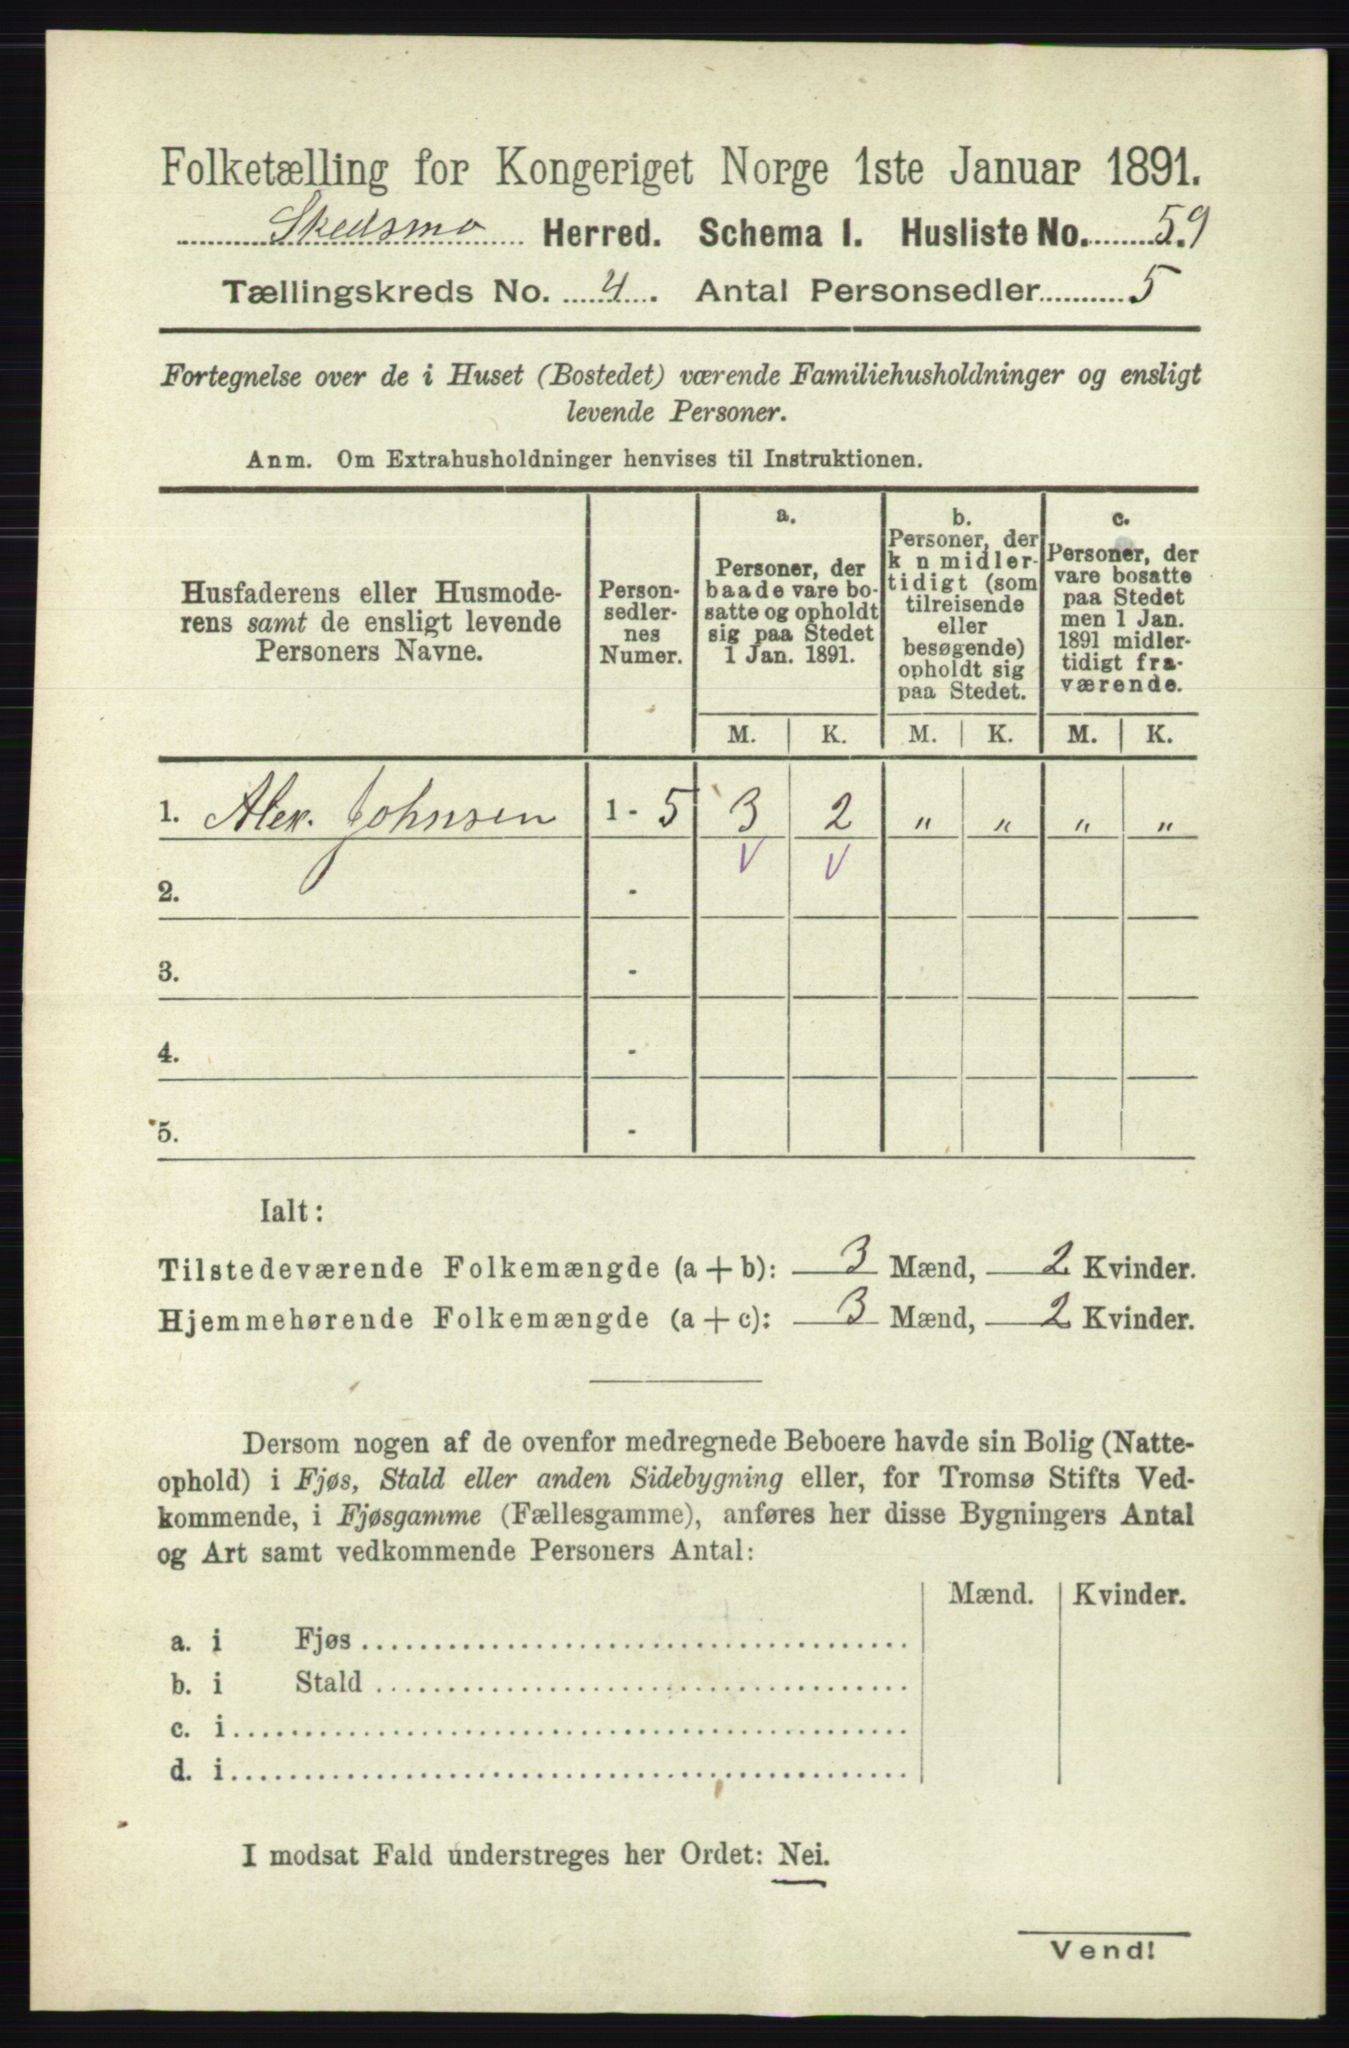 Folketælling for Kongeriget Norge 1ste Januar 1891.
Skedsmo Herred. Schema I. Husliste No. 59
Tællingskreds No. 4. Antal Personsedler 5
Fortegnelse over de i Huset (Bostedet) værende Familiehusholdninger og ensligt
levende Personer.
Anm. Om Extrahusholdninger henvises til Instruktionen.
Husfaderens eller Husmode-
rens samt de ensligt levende
Personers Navne.
Person-
sedler-
nes
Numer.
a.
Personer, der
baade vare bo-
satte og opholdt
sig paa Stedet
1 Jan. 1891.
b.
Personer, der
k n midler-
tidigt (som
tilreisende
eller
besøgende)
opholdt sig
paa Stedet.
c.
Personer, der
vare bosatte
paa Stedet
men 1 Jan.
1891 midler-
tidigt fra-
værende.
M. K. M. K. M. K.
1. Alex. Johnsen 1 - 5 3 2 „ „ „ „
2. -
3. -
4. -
5. -
Ialt:
Tilstedeværende Folkemængde (a + b): 3 Mænd, 2 Kvinder.
Hjemmehørende Folkemængde (a + c): 3 Mænd, 2 Kvinder.
Dersom nogen af de ovenfor medregnede Beboere havde sin Bolig (Natte-
ophold) i Fjøs, Stald eller anden Sidebygning eller, for Tromsø Stifts Ved-
kommende, i Fjøsgamme (Fællesgamme), anføres her disse Bygningers Antal
og Art samt vedkommende Personers Antal:
Mænd. Kvinder.
a. i Fjøs
b. i Stald
c. i
d. i
I modsat Fald understreges her Ordet: Nei.
Vend!